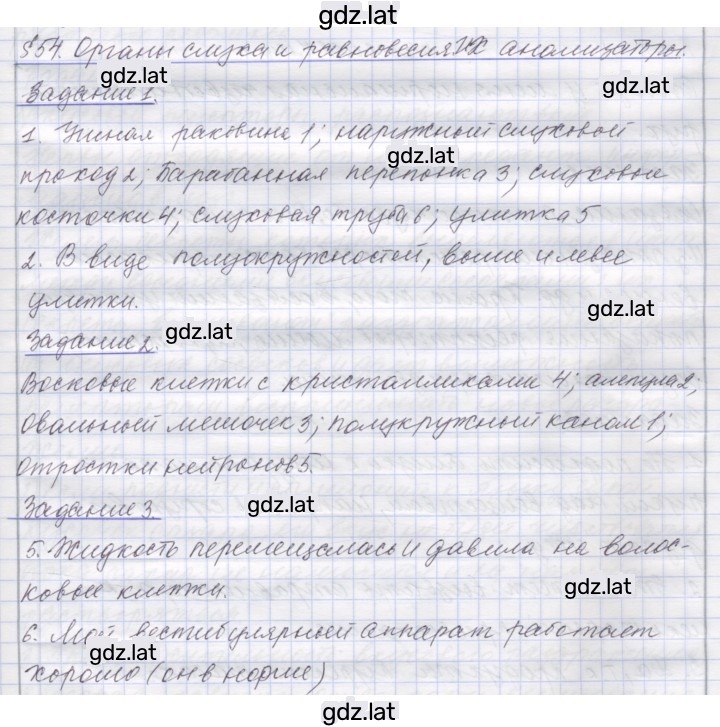 gdz.lat
§54. Органы слуха и равновесия. Их анализаторы.
gdz.lat
gdz.lat
Задание 1.
1. Ушная раковина 1; наружный слуховой
gdz.lat
проход 2; Барабанная перепонка 3; слуховые
косточки 4; слуховая труба 6; улитка 5
2. В виде полуокружностей, выше и левее
улитки.
gdz.lat
gdz.lat
Задание 2.
Восковые клетки с кристалликами 4; ампула 2;
Овальный мешочек 3; полукружный канал 1;
Отростки нейронов 5.
gdz.lat
Задание 3.
5. Жидкость перемещалась и давила на волос-
ковые клетки.
gdz.lat
6. Мой вестибулярный аппарат работает
gdz.lat
хорошо (он в норме)
gdz.lat